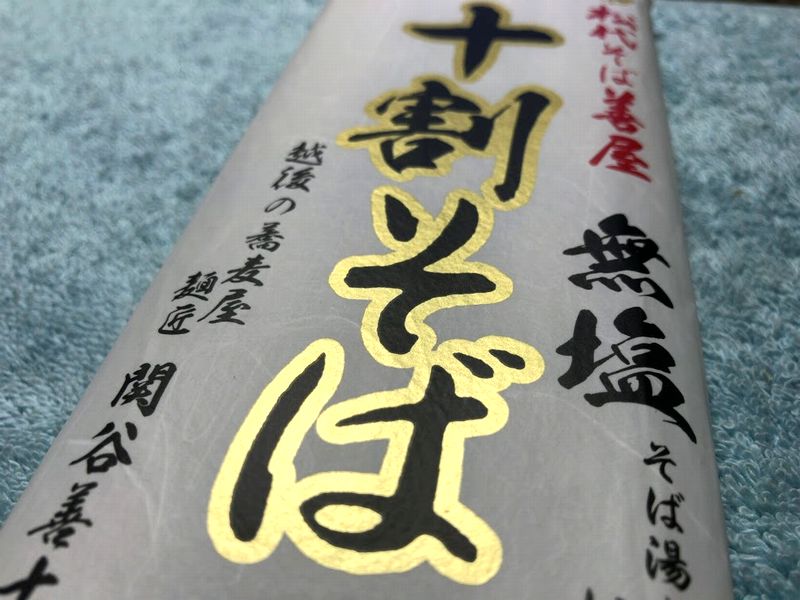 松代そば善屋
十割そば
無塩
そば湯
越後の蕎麦屋
麺匠
関谷善十